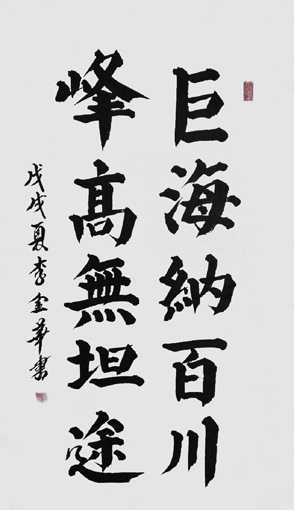 巨海納百川
峰髙無坦途
戊戌夏李金華書